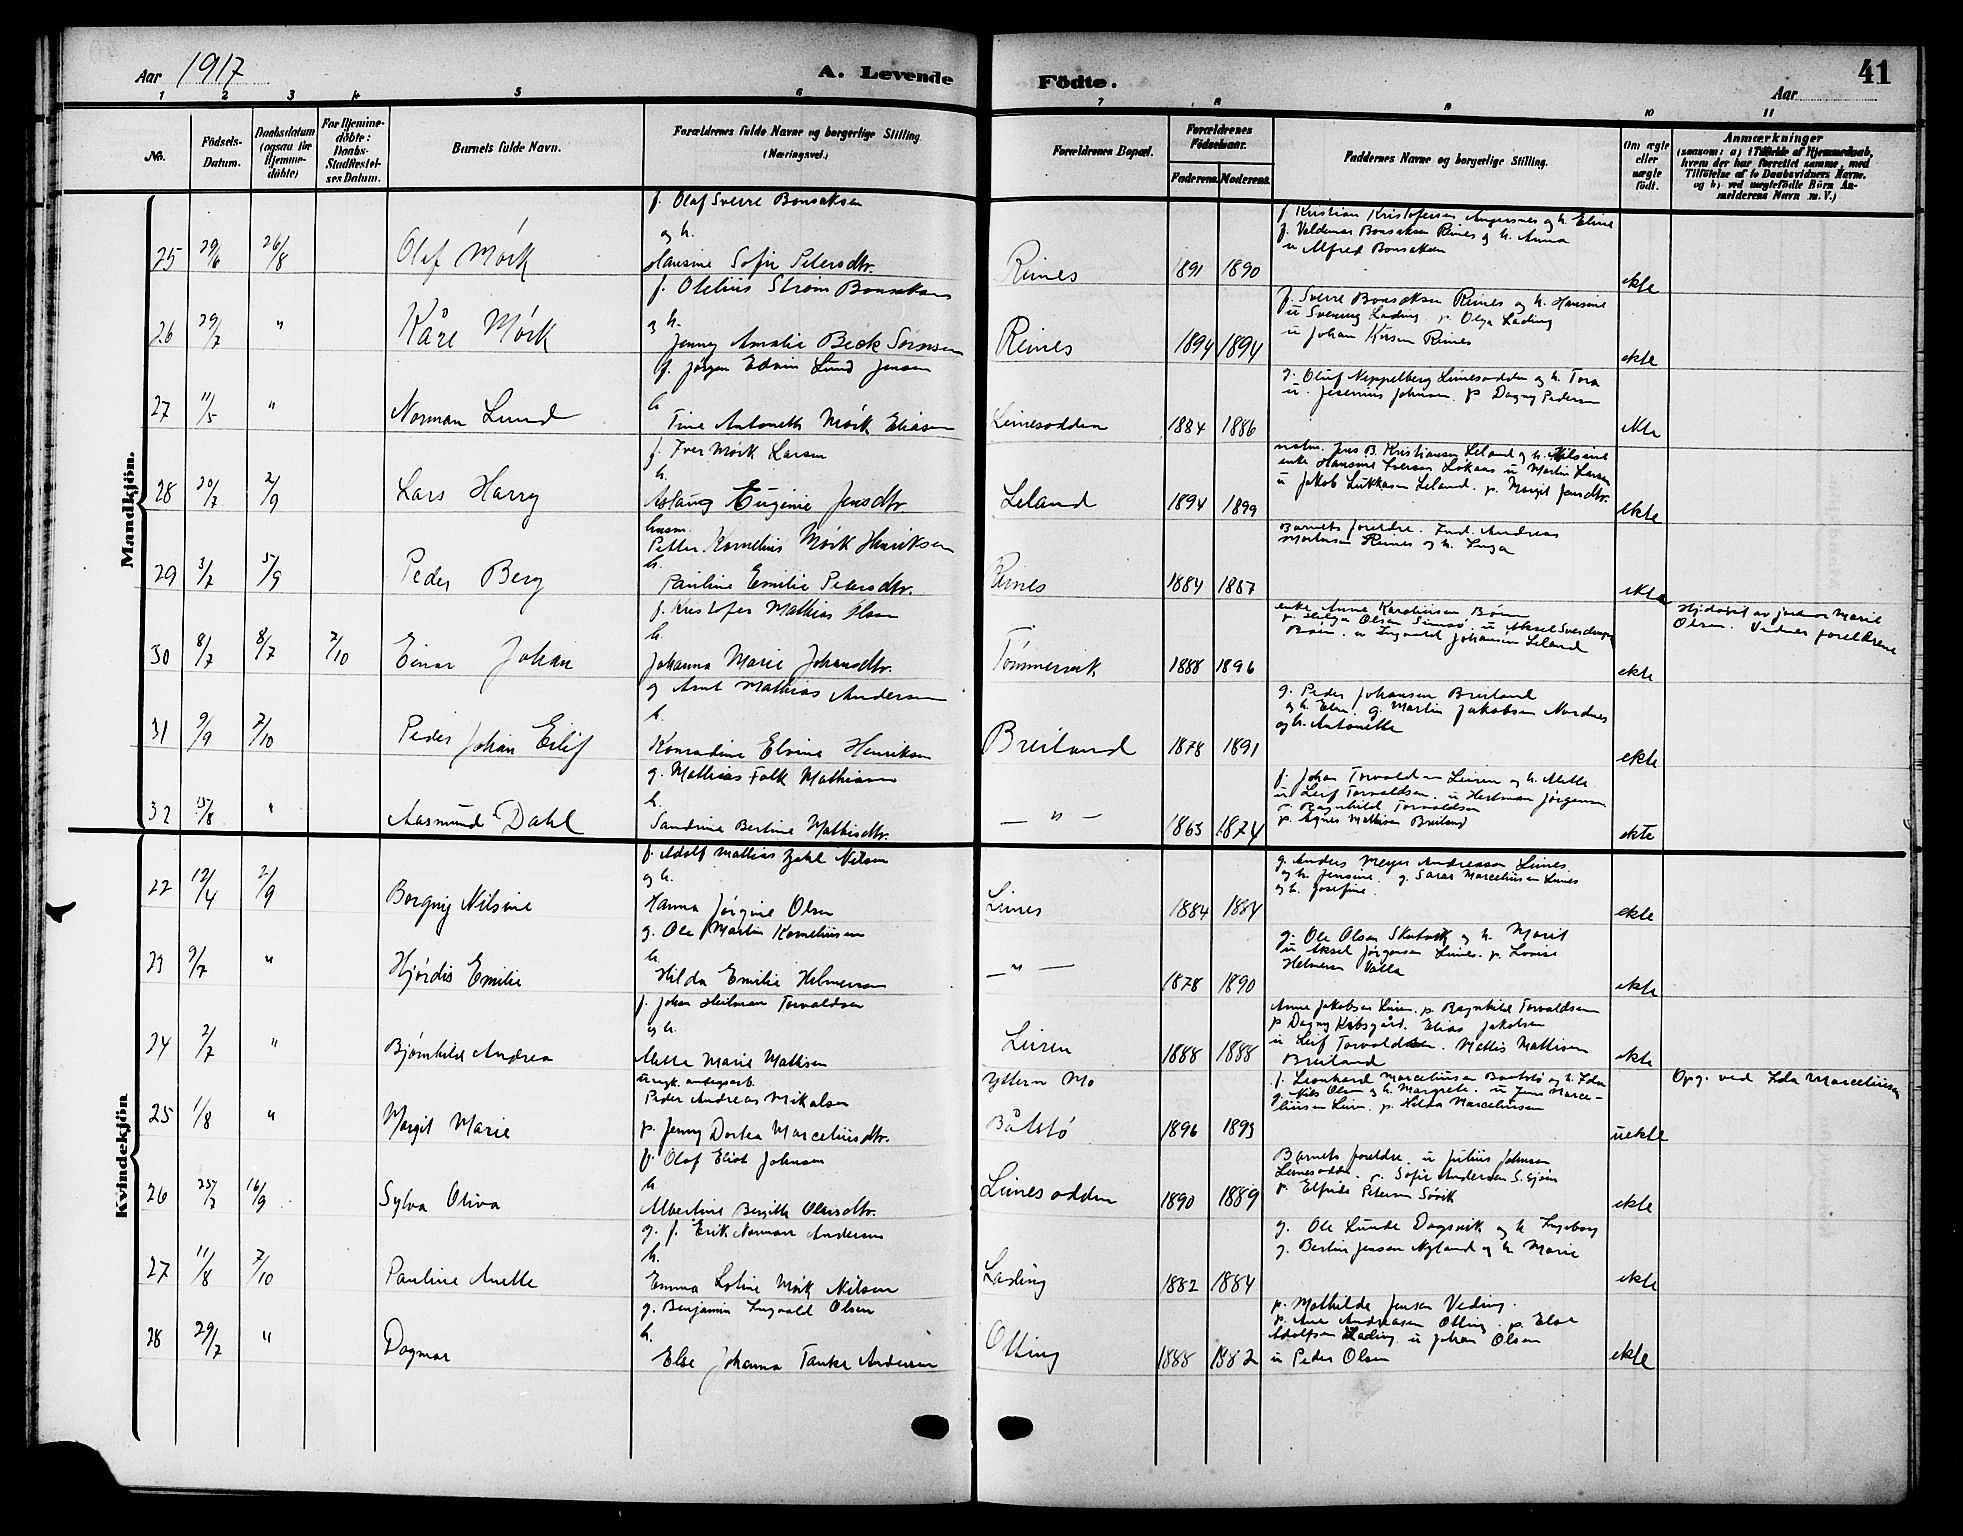 41
Aar 1917
A. Levende Födte.
Aar
1 2 3 4 5 6 7 8 9 10 11
No.
Födsels-Datum.
Daabsdatum (ogsaa for Hjemme-döbte)
For Hjemme-döbte: Daabs-Stadfæstel-ses Datum.
Barnets fulde Navn.
Forældrenes fulde Navne og borgerlige Stilling. (Næringsvei.)
Forældrenes Bopæl.
Forældrenes Födselsaar.
Faderens. Moderens.
Faddernes Navne og borgerlige Stilling.
Om ægte eller uægte födt.
Anmærkninger
(saasom: a) i Tilfælde af Hjemmedaab, hvem der har forrettet samme, med Tilföielse af to Daabsvidners Navne, og b) ved uægtefödte Börn An-melderens Navn m. V.)
Mandkjön.
25 29/6 26/8 Olaf Mörk
f. Olaf Sverre Bonsaksen
og h.
Hansine Sofie Petersdtr.
Reines 1891 1890
f. Kristian Kristofersen Angersnes og h. Eline
f. Valdemar Bonsaksen Reines og h. Anna
u Alfred Bonsaksen
ekte
26 29/7 " Kåre Mörk
f. Otelius Ström Bonsaksen
og h.
Jenny Amalie Beck Sörnsen
Reines 1894 1894
f. Sverre Bonsaksen Reines og h. Hansine
u Svening Lading p. Olga Lading
u Johan Reines
ekte
27 11/5 " Norman Lund
g. Jörgen Edvin Lund Jensen
h.
Tine Antonette Mörk Eliasen
Leinesodden 1884 1886
g. Oluf Neppelberg Leinesodden og h. Tora
u. Jesenius Johnsen. p Dagny Pedersen
ekte
28 20/7 2/9 Lars Harry
f. Iver Mörk Larsen
h.
Aslaug Eugenie Jensdtr
Leland 1894 1899
Jens B. Kristiansen Leland og h. Nilsine
enke Hansine Iversen Lökaas u Martin Larsen
u Jakob Lukkasen Leland. p. Margit Jensdtr.
ekte
29 3/7 5/9 Peder Berg
husm.
Petter Kornelius Mörk Henriksen
h.
Pauline Emilie Petersdtr.
Reines 1884 1887
Barnets foreldre. Andreas
Mortensen Reines og h. Inga
ekte
30 8/7 8/7 7/10 Einar Johan
f. Kristofer Mathias Olsen
h.
Johanna Marie Johansdtr.
Tömmervik 1888 1896
enke Anne Karoliussen
p. Helga Olsen u Aksel
u Ingvald Johansen Leland
ekte
Hj.döpt av jordmor Marie
Olsen. Vidner foreldrene
31 9/9 7/10 Peder Johan Eilif
g Arnt Mathias Andersen
h.
Konradine Elvine Henriksen
Breiland 1878 1891
g. Peder Johansen Breiland
og h. Elen. g. Martin Jakobsen Nordnes
og h. Antonette
ekte
32 15/8 " Aasmund Dahl
g. Mathias Falk Mathisen
h.
Sandrine Bertine Mathisdtr.
— " — 1863 1874
f. Johan Torvaldsen Leiren og h. Mette
u Leif Torvaldsen. u Herlman Jörgensen
p. Ragnhild Torvaldsen
p. Agnes Mathisen Breiland
ekte
Kvindekjön
22 12/4 2/9 Borgny Nilsine
f. Adolf Mathias Zahl Nilsen
og h.
Hanna Jörgine Olsen
Leines 1884 1884
g. Anders Meyer Andreassen Leines
og h. Jensine. g. Marceliussen Leines
og h. Josefine.
ekte
23 9/7 " Hjördis Emilie
g. Ole Martin Korneliussen
h.
Hilda Emilie Helmersen
— " — 1878 1890
g. Ole Olsen og h. Marit
u Aksel Jörgensen Leines. p. Lovise
Helmersen Valla
ekte
24 2/7 " Bjørnhild Andrea
f. Johan Heilman Torvaldsen
og h.
Mette Marie Mathisen
Leiren 1888 1888
Anne Jakobsen Leiren. p Ragnhild Torvaldsen
p Dagny Kibsgård. Elias Jakobsen
u Leif Torvaldsen. Mathis Mathisen
Breiland
ekte
25 1/8 " Margit Marie
Peder Andreas Mikalsen
p. Jenny Dortea Marceliusdtr.
Yttern Mo
Båtstö 1896 1893
f. Leonhard Marceliussen Baatstö og h. Ida
g. Nils Olsen og h. Margrete. u Jens Marce-
liussen Leiren. p. Hilda Marceliussen
uekte
Opg. ved Ida Marceliussen
26 25/7 16/9 Sylva Oliva
f. Olaf Eliot Johnsen
h
Albertine Birgitte Olausdtr.
Leinesodden 1890 1889
Barnets foreldre. u Julius Johnsen
Leinesodden. p. Sofie Andersen S. Sjöen
p. Elfride Petersen Sövik
ekte
27 11/8 7/10 Pauline Anette
g. f. Erik Norman Andersen
h.
Emma Lotine Mörk Nilsen
Lading 1882 1884
g. Ole Lunde Dagsvik og h Ingeborg
g. Bertin Jensen Nyland og h. Marie
ekte
28 29/7 " Dagmar
g. Benjamin Ingvald Olsen
h.
Else Johanna Tanke Andersen
Olting 1888 1882
p. Mathilde Jensen Veding.
p. Ane Andreasen Olting. p. Else
Adolfsen Lading. u Johan Olsen
u Peder Olsen
ekte